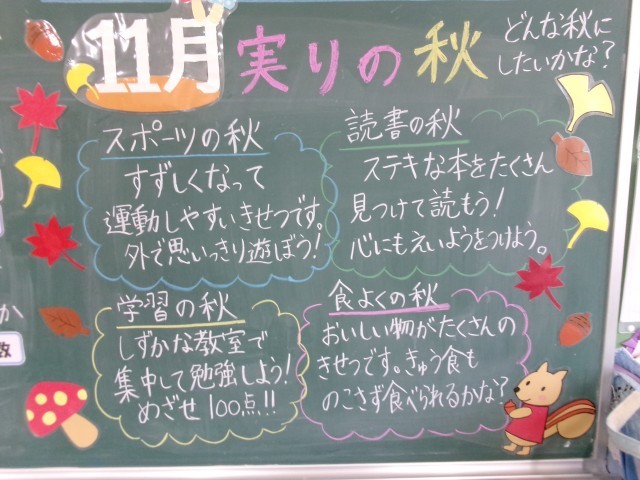 11月 実りの秋
どんな秋に
したいかな?
スポーツの秋
すずしくなって
運動しやすいきせつです。
外で思いっきり遊ぼう!
読書の秋
ステキな本をたくさん
見つけて読もう!
心にもえいようをつけよう。
学習の秋
しずかな教室で
集中して勉強しよう!
めざせ100点!!
食よくの秋
おいしい物がたくさんの
きせつです。きゅう食も
のこさず食べられるかな?
か
数